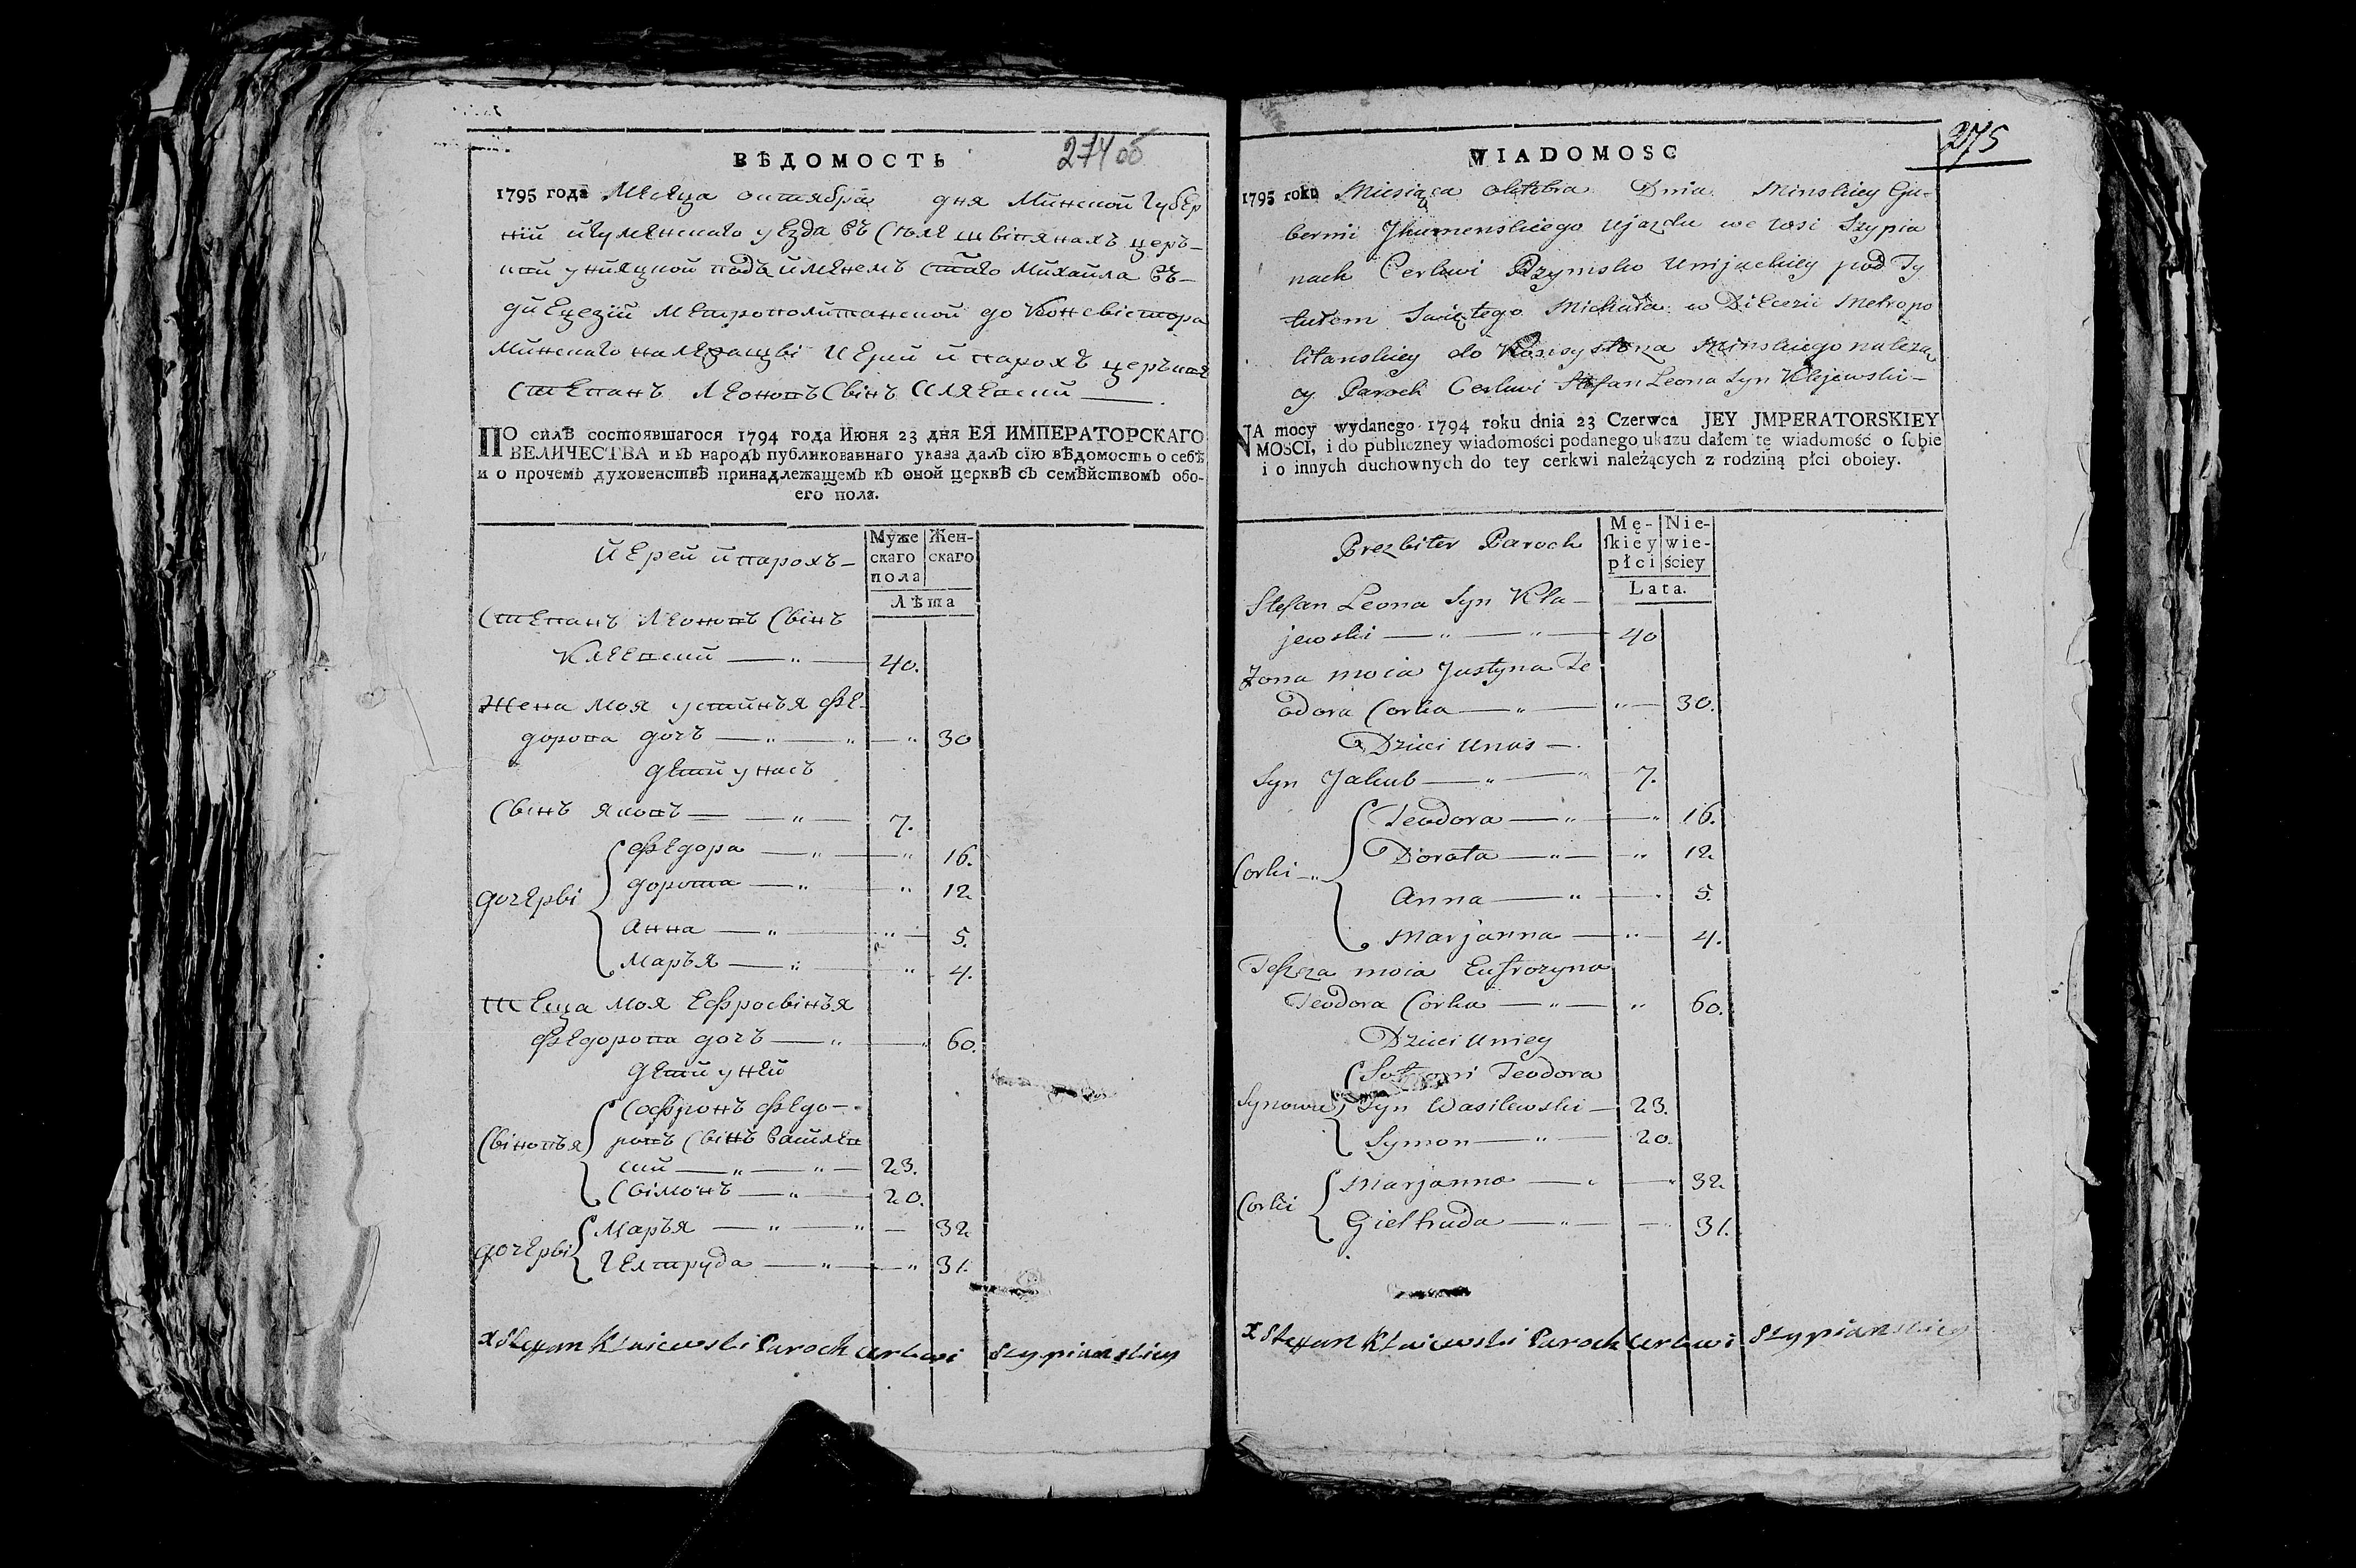 ВѢДОМОСТЬ
274 об
1795 года Месяца октября дня Минской Губер
нии игуменскаго уезда въ селе швіпянахъ церъ-
кви унияцкой подъ имянемъ стаго Михаила въ-
диецезии метрополитанской до Консвістора
Минскаго належащві иерей и парохъ церъкви
Степанъ Леоновъ Свінъ Кляевский
ПО силѣ состоявшагося 1794 года Июня 23 дня ЕЯ ИМПЕРАТОРСКАГО
ВЕЛИЧЕСТВА и въ народъ публикованнаго указа далъ сїю вѣдомость о себѣ
и о прочемъ духовенствѣ принадлежащемъ къ оной церквѣ съ семѣйствомъ обо-
его пола.
Иерей и парохъ-
Муже Жен-
скаго скаго
пола
Лѣта
Степанъ Леоновъ Свінъ
Клеевский 40.
Жена моя устинъя фе-
дорова дочъ 30
дети у насъ
Свінъ яковъ 7.
дочерві
федора 16.
дорота 12
Анна 5.
Маръя 4.
теща моя Ефросвінъя
федорова дочъ 60.
дети у ней
Свіновъя
Софронъ федо-
ровъ Свінъ Василев
ский 23.
Свімонъ 20.
дочерві
Маръя 32
Гелтруда 31.
x Stefan Kłaiewski Paroch Cerkwi Szypianskiey
275
WIADOMOSC
1795 roku Miesiąca oktobra Dnia Minskiey Gu-
bernii Jhumenskiego ujazdu we wsi Szypia
nach Cerkwi Rzymsko Unijackiey pod Ty
tułem Swiętego Michała w Diecezii Metropo
litanskiey do Konsystorza Minskiego należą
cy Paroch Cerkwi Stefan Leona Syn Klejewski-
NA mocy wydanego 1794 roku dnia 23 Czerwca JEY JMPERATORSKIEY
MOSCI, i do publiczney wiadomości podanego ukazu dałem tę wiadomość o sobie
i o innych duchownych do tey cerkwi należących z rodziną płci oboiey.
Prezbiter Paroch
Mę- Nie-
skiey wie-
płci ściey
Lata.
Stefan Leona Syn Kła-
jewski 40
Żona moia Justyna Te
odora Corka 30.
Dzieci u nas
Syn Jakub 7.
Corki
Teodora 16.
Dorata 12
Anna 5.
Marjanna 4.
Teszcza moia Eufrozyna
Teodora Corka 60.
Dzieci u niey
Synowie
Sofroni Teodora
Syn Wasilewski 23.
Symon 20.
Corki
Marjanna 32
Gieltruda 31.
x Stefan Kłaiewski Paroch Cerkwi Szypianskiey